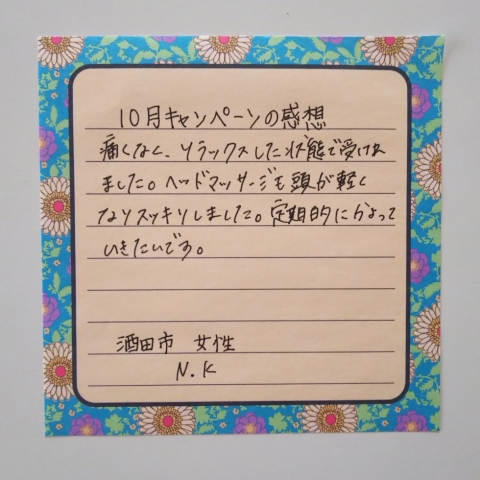 10月キャンペーンの感想
痛くなく、リラックスした状態で受けれ
ました。ヘッドマッサージも頭が軽く
なりスッキリしました。定期的にかよって
いきたいです。
酒田市 女性
N.K